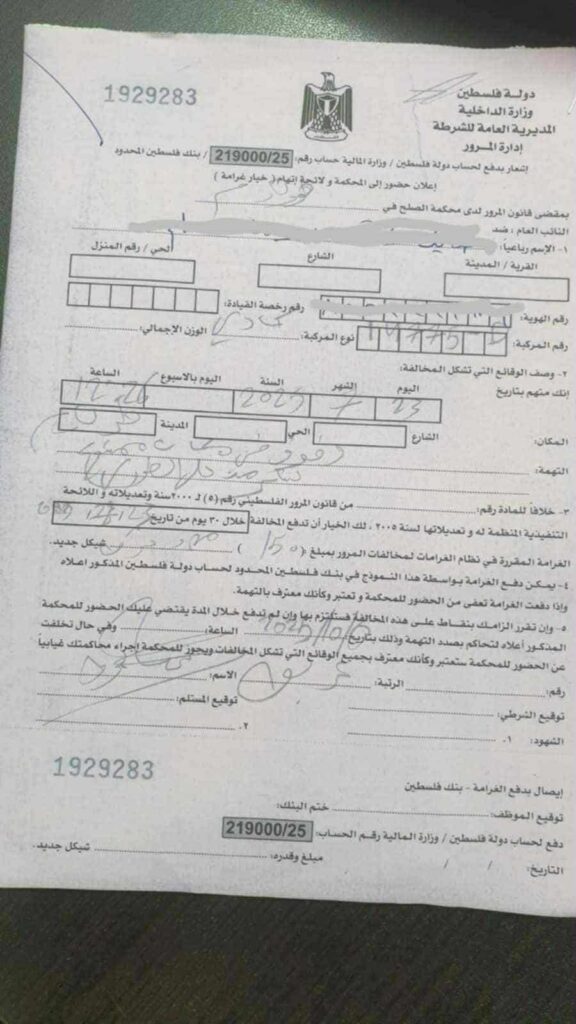 1929283
دولة فلسطين
وزارة الداخلية
المديرية العامة للشرطة
إدارة المرور
إشعار بدفع لحساب دولة فلسطين / وزارة المالية حساب رقم: 219000/25 / بنك فلسطين المحدود
إعلان حضور إلى المحكمة و لائحة إتهام ( خيار غرامة )
بمقتضى قانون المرور لدى محكمة الصلح في
النائب العام : ضد
١- الإسم رباعيا:
القرية / المدينة الشارع الحي / رقم المنزل
رقم الهوية: رقم رخصة القيادة:
رقم المركبة: نوع المركبة: الوزن الإجمالي:
٢- وصف الوقائع التي تشكل المخالفة:
إنك متهم بتاريخ اليوم الشهر السنة اليوم بالاسبوع الساعة
23 7 2025
المكان: الشارع الحي المدينة
التهمة:
٣- خلافاً للمادة رقم: من قانون المرور الفلسطيني رقم (٥) لـ ٢٠٠٠ سنة وتعديلاته و اللائحة
التنفيذية المنظمة له و تعديلاتها لسنة ٢٠٠٥ ، لك الخيار أن تدفع المخالفة خلال ٣٠ يوم من تاريخ
الغرامة المقررة في نظام الغرامات لمخالفات المرور بمبلغ ( 150 ) شيكل جديد.
٤- يمكن دفع الغرامة بواسطة هذا النموذج في بنك فلسطين المحدود لحساب دولة فلسطين المذكور اعلاه
وإذا دفعت الغرامة تعفى من الحضور للمحكمة و تعتبر وكأنك معترف بالتهمة.
٥- وإن تقرر الزامك بنقاط على هذه المخالفة فستلتزم بها وإن لم تدفع خلال المدة يقتضي عليك الحضور للمحكمة
المذكور أعلاه لتحاكم بصدد التهمة وذلك بتاريخ الساعة: وفي حال تخلفت
عن الحضور للمحكمة ستعتبر وكأنك معترف بجميع الوقائع التي تشكل المخالفات ويجوز للمحكمة إجراء محاكمتك غيابياً
رقم: الرتبة: الاسم:
توقيع الشرطي: توقيع المستلم:
الشهود: ١. ٢.
1929283
إيصال بدفع الغرامة - بنك فلسطين
توقيع الموظف: ختم البنك:
دفع لحساب دولة فلسطين / وزارة المالية رقم الحساب: 219000/25
التاريخ: / / مبلغ وقدره: شيكل جديد.